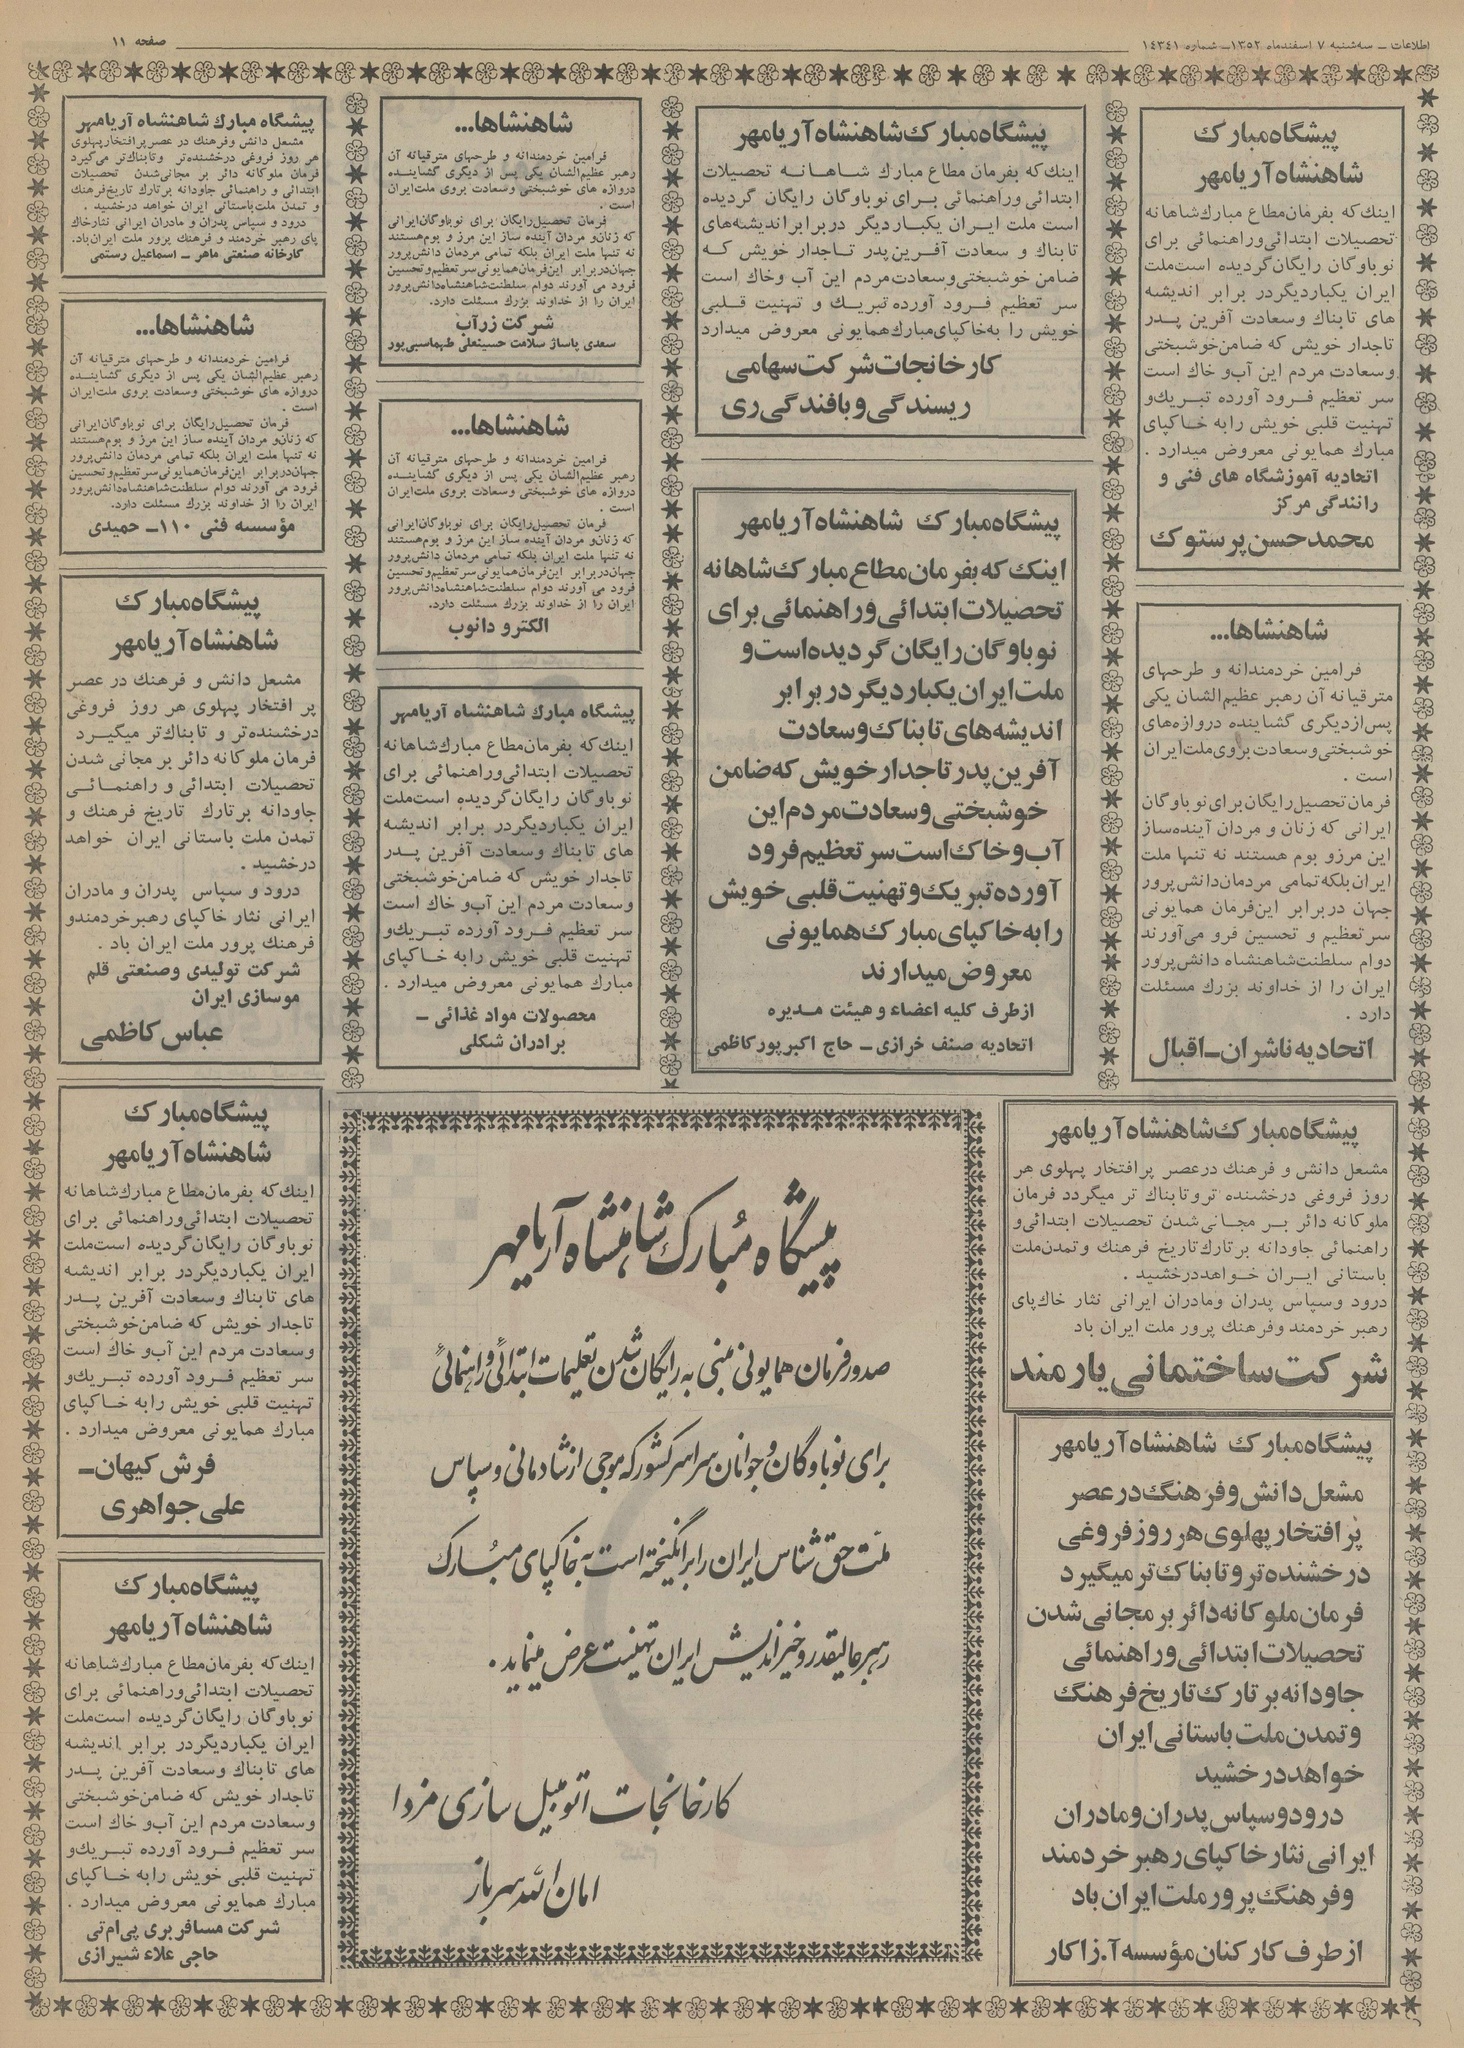 اطلاعات ـ سه‌شنبه ۷ اسفندماه ۱۳۵۲ـ شماره ۱۴۳۴۱
صفحه ۱۱
پیشگاه مبارک
شاهنشاه آریامهر
اینك که بفرمان مطاع مبارك شاهانه
تحصیلات ابتدائی و راهنمائی برای
نوباوگان رایگان گردیده است ملت
ایران یکباردیگر در برابر اندیشه
های تابناك وسعادت آفرین پدر
تاجدار خویش که ضامن خوشبختی
وسعادت مردم این آب و خاك است
سر تعظیم فرود آورده تبریك و
تهنیت قلبی خویش رابه خاکپای
مبارك همایونی معروض میدارد .
اتحادیه آموزشگاه های فنی و
رانندگی مرکز
محمدحسن پرستوک
شاهنشاها...
فرامین خردمندانه و طرحهای
مترقیانه آن رهبر عظیم الشان یکی
پس‌ازدیگری گشاینده دروازه‌های
خوشبختی وسعادت بروی ملت ایران
است .
فرمان تحصیل رایگان برای نوباوگان
ایرانی که زنان و مردان آینده‌ساز
این مرزو بوم هستند نه تنها ملت
ایران بلکه تمامی مردمان دانش پرور
جهان در برابر این فرمان همایونی
سر تعظیم و تحسین فرو می‌آورند
دوام سلطنت شاهنشاه دانش پرور
ایران را از خداوند بزرك مسئلت
دارد .
اتحادیه ناشران ـ اقبال
پیشگاه مبارک شاهنشاه آریامهر
اینك که بفرمان مطاع مبارك شاهانه تحصیلات
ابتدائی وراهنمائی برای نوباوگان رایگان گردیده
است ملت ایران یکباردیگر در برابر اندیشه‌های
تابناك و سعادت آفرین پدر تاجدار خویش که
ضامن خوشبختی وسعادت مردم این آب وخاك است
سر تعظیم فرود آورده تبریك و تهنیت قلبی
خویش را به خاکپای مبارك همایونی معروض میدارد
کارخانجات شرکت سهامی
ریسندگی و بافندگی ری
پیشگاه مبارک شاهنشاه آریامهر
اینک که بفرمان مطاع مبارک شاهانه
تحصیلات ابتدائی و راهنمائی برای
نوباوگان رایگان گردیده است و
ملت ایران یکبار دیگر در برابر
اندیشه های تابناک و سعادت
آفرین پدر تاجدار خویش که ضامن
خوشبختی و سعادت مردم این
آب و خاک است سر تعظیم فرود
آورده تبریک و تهنیت قلبی خویش
را به خاکپای مبارک همایونی
معروض میدارند
از طرف کلیه اعضاء و هیئت مدیره
اتحادیه صنف خرازی ـ حاج اکبر پور کاظمی
شاهنشاها...
فرامین خردمندانه و طرحهای مترقیانه آن
رهبر عظیم‌الشان یکی پس از دیگری گشاینده
دروازه های خوشبختی وسعادت بروی ملت ایران
است .
فرمان تحصیل رایگان برای نوباوگان ایرانی
که زنان و مردان آینده ساز این مرز و بوم هستند
نه تنها ملت ایران بلکه تمامی مردمان دانش پرور
جهان در برابر این فرمان همایونی سر تعظیم و تحسین
فرود می آورند دوام سلطنت شاهنشاه دانش پرور
ایران را از خداوند بزرك مسئلت دارد.
شرکت زرآب
سعدی پاساژ سلامت حسینعلی طهماسبی‌پور
شاهنشاها...
فرامین خردمندانه و طرحهای مترقیانه آن
رهبر عظیم الشان یکی پس از دیگری گشاینده
دروازه های خوشبختی وسعادت بروی ملت ایران
است .
فرمان تحصیل رایگان برای نوباوگان ایرانی
که زنان و مردان آینده ساز این مرز و بوم هستند
نه تنها ملت ایران بلکه تمامی مردمان دانش پرور
جهان در برابر این فرمان همایونی سر تعظیم و تحسین
فرود می آورند دوام سلطنت شاهنشاه دانش پرور
ایران را از خداوند بزرك مسئلت دارد.
الکترو دانوب
پیشگاه مبارك شاهنشاه آریامهر
اینك که بفرمان مطاع مبارك شاهانه
تحصیلات ابتدائی وراهنمائی برای
نوباوگان رایگان گردیده است ملت
ایران یکباردیگر در برابر اندیشه
های تابناك وسعادت آفرین پدر
تاجدار خویش که ضامن خوشبختی
وسعادت مردم این آب و خاك است
سر تعظیم فرود آورده تبریك و
تهنیت قلبی خویش رابه خاکپای
مبارك همایونی معروض میدارد .
محصولات مواد غذائی ـ
برادران شکلی
پیشگاه مبارك شاهنشاه آریامهر
مشعل دانش وفرهنك در عصر پرافتخار پهلوی
هر روز فروغی درخشنده‌تر وتابناك‌تر می‌گیرد
فرمان ملوکانه دائر بر مجانی شدن تحصیلات
ابتدائی و راهنمائی جاودانه بر تارك تاریخ فرهنك
و تمدن ملت باستانی ایران خواهد درخشید .
درود و سپاس پدران و مادران ایرانی نثار خاك
پای رهبر خردمند و فرهنك پرور ملت ایران باد.
کارخانه صنعتی ماهر ـ اسماعیل رستمی
شاهنشاها...
فرامین خردمندانه و طرحهای مترقیانه آن
رهبر عظیم‌الشان یکی پس از دیگری گشاینده
دروازه های خوشبختی وسعادت بروی ملت ایران
است .
فرمان تحصیل رایگان برای نوباوگان ایرانی
که زنان و مردان آینده ساز این مرز و بوم هستند
نه تنها ملت ایران بلکه تمامی مردمان دانش پرور
جهان در برابر این فرمان همایونی سر تعظیم و تحسین
فرود می آورند دوام سلطنت شاهنشاه دانش پرور
ایران را از خداوند بزرك مسئلت دارد.
مؤسسه فنی ۱۱۰ـ حمیدی
پیشگاه مبارک
شاهنشاه آریامهر
مشعل دانش و فرهنك در عصر
پر افتخار پهلوی هر روز فروغی
درخشنده‌تر و تابناك‌تر میگیرد
فرمان ملوکانه دائر بر مجانی شدن
تحصیلات ابتدائی و راهنمائی
جاودانه بر تارك تاریخ فرهنك و
تمدن ملت باستانی ایران خواهد
درخشید .
درود و سپاس پدران و مادران
ایرانی نثار خاکپای رهبر خردمندو
فرهنك پرور ملت ایران باد .
شرکت تولیدی وصنعتی قلم
موسازی ایران
عباس کاظمی
پیشگاه مبارک
شاهنشاه آریامهر
اینك که بفرمان مطاع مبارك شاهانه
تحصیلات ابتدائی وراهنمائی برای
نوباوگان رایگان گردیده است ملت
ایران یکباردیگر در برابر اندیشه
های تابناك وسعادت آفرین پدر
تاجدار خویش که ضامن خوشبختی
وسعادت مردم این آب و خاك است
سر تعظیم فرود آورده تبریك و
تهنیت قلبی خویش رابه خاکپای
مبارك همایونی معروض میدارد .
فرش کیهان ـ
علی جواهری
پیشگاه مبارک
شاهنشاه آریامهر
اینك که بفرمان مطاع مبارك شاهانه
تحصیلات ابتدائی وراهنمائی برای
نوباوگان رایگان گردیده است ملت
ایران یکباردیگر در برابر اندیشه
های تابناك وسعادت آفرین پدر
تاجدار خویش که ضامن خوشبختی
وسعادت مردم این آب و خاك است
سر تعظیم فرود آورده تبریك و
تهنیت قلبی خویش رابه خاکپای
مبارك همایونی معروض میدارد .
شرکت مسافربری پی‌ام‌تی
حاجی علاء شیرازی
پیشگاه مبارک شاهنشاه آریامهر
مشعل دانش و فرهنك در عصر پر افتخار پهلوی هر
روز فروغی درخشنده تر و تابناك تر میگردد فرمان
ملوکانه دائر بر مجانی شدن تحصیلات ابتدائی و
راهنمائی جاودانه بر تارك تاریخ فرهنك و تمدن ملت
باستانی ایران خواهد درخشید .
درود وسپاس پدران ومادران ایرانی نثار خاك پای
رهبر خردمند وفرهنك پرور ملت ایران باد
شرکت ساختمانی یارمند
پیشگاه مبارک شاهنشاه آریامهر
مشعل دانش و فرهنگ در عصر
پر افتخار پهلوی هر روز فروغی
درخشنده تر و تابناک تر میگیرد
فرمان ملوکانه دائر بر مجانی شدن
تحصیلات ابتدائی و راهنمائی
جاودانه بر تارک تاریخ فرهنگ
و تمدن ملت باستانی ایران
خواهد درخشید
درود و سپاس پدران و مادران
ایرانی نثار خاکپای رهبر خردمند
و فرهنگ پرور ملت ایران باد
از طرف کارکنان مؤسسه آ.زاکار
پیشگاه مُبارک شاهنشاه آریامهر
صدور فرمان همایونی مبنی به رایگان شدن تعلیمات ابتدائی و راهنمائی
برای نوباوگان و جوانان سراسر کشور که موجی از شادمانی و سپاس
ملت حق شناس ایران را برانگیخته است به خاکپای مبُارک
رهبر عالیقدر و خیراندیش ایران تهنیت عرض مینماید .
کارخانجات اتومبیل سازی مزدا
امان الله سرباز